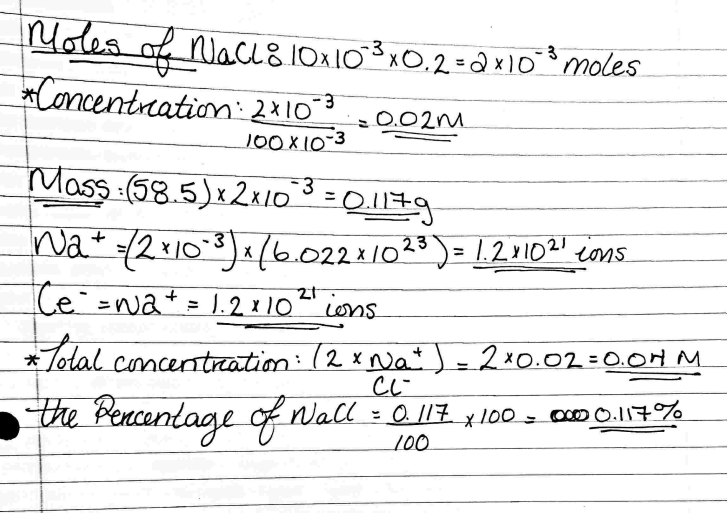 Moles of NaCl: 10x10⁻³x0.2=2x10⁻³ moles
*Concentration: 2x10⁻³ / 100x10⁻³ = 0.02M
Mass:(58.5)x2x10⁻³ = 0.117g
Na⁺ =(2x10⁻³)x(6.022x10²³)= 1.2x10²¹ ions
Ce⁻ =Na⁺ = 1.2x10²¹ ions
*Total concentration: (2 x Na⁺ / Cl⁻) = 2x0.02=0.04 M
the Percentage of NaCl = 0.117 / 100 x100 = 0.117%